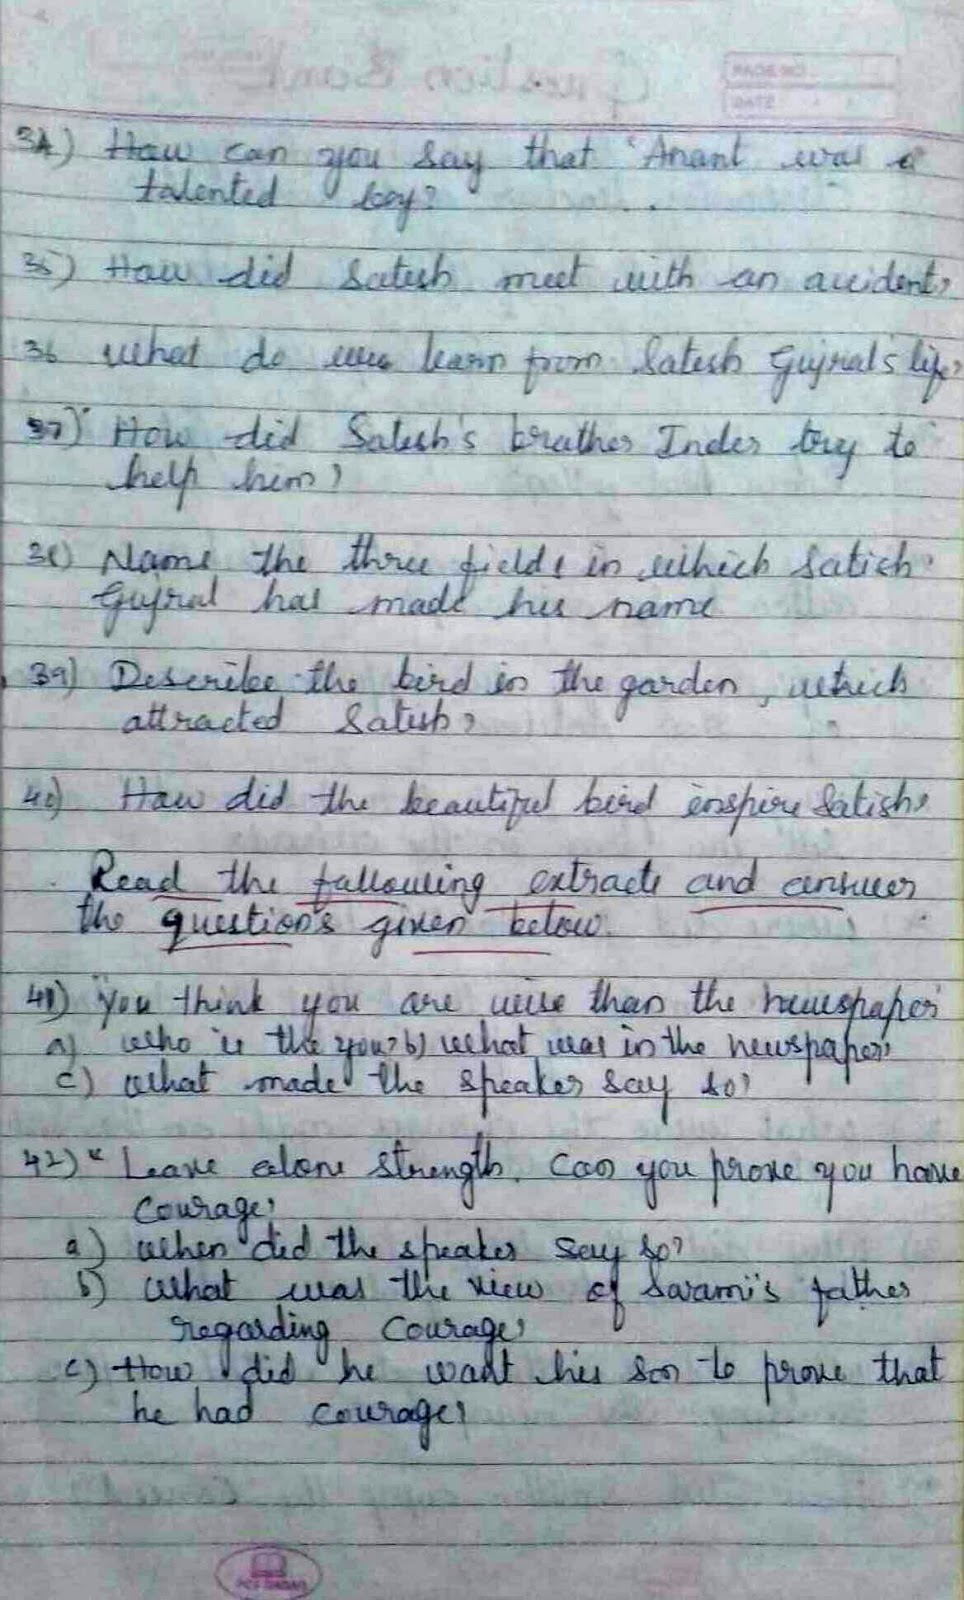 34) How can you say that 'Anant was a
talented boy?
35) How did Satish meet with an accident?
36 What do we learn from Satish Gujral's life?
37) How did Satish's brother Inder try to
help him?
38) Name the three fields in which Satish
Gujral has made his name
39) Describe the bird in the garden, which
attracted Satish?
40) How did the beautiful bird inspire Satish?
Read the following extracts and answer
the questions given below.
41) "You think you are wise than the newspaper"
a) Who is the you? b) What was in the newspaper?
c) What made the speaker say so?
42) "Leave alone strength. Can you prove you have
courage?
a) When did the speaker say so?
b) What was the view of Swami's father
regarding courage?
c) How did he want his son to prove that
he had courage?